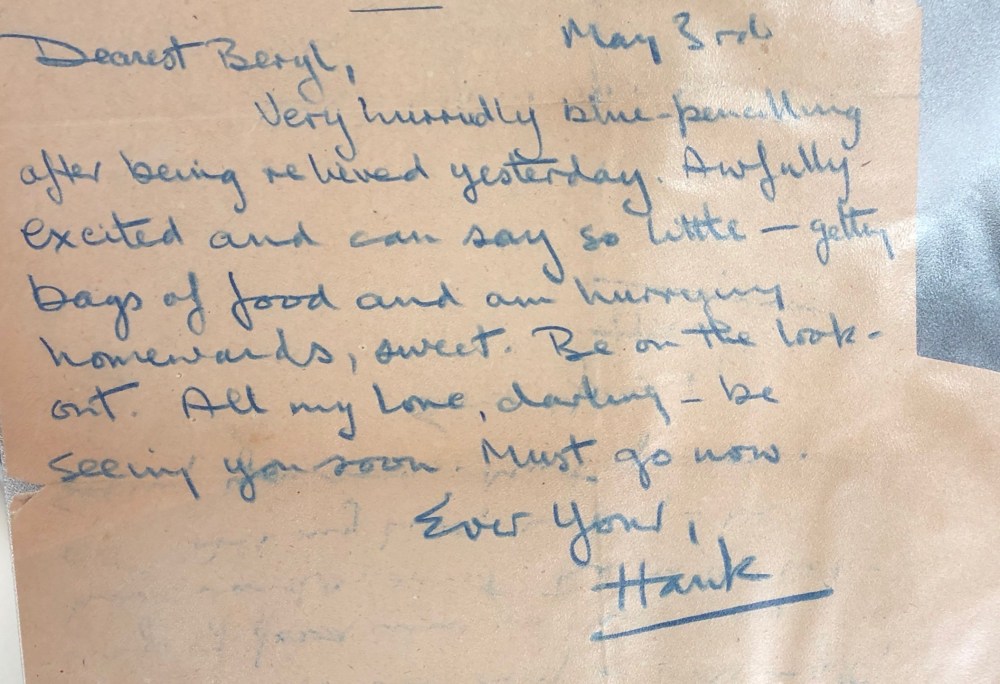 May 3rd
Dearest Beryl,
Very hurridly blue-pencilling
after being relieved yesterday. Awfully
excited and can say so little — getting
bags of food and am hurrying
homewards, sweet. Be on the look-
out. All my love, darling – be
seeing you soon. Must go now.
Ever Yours,
Hank